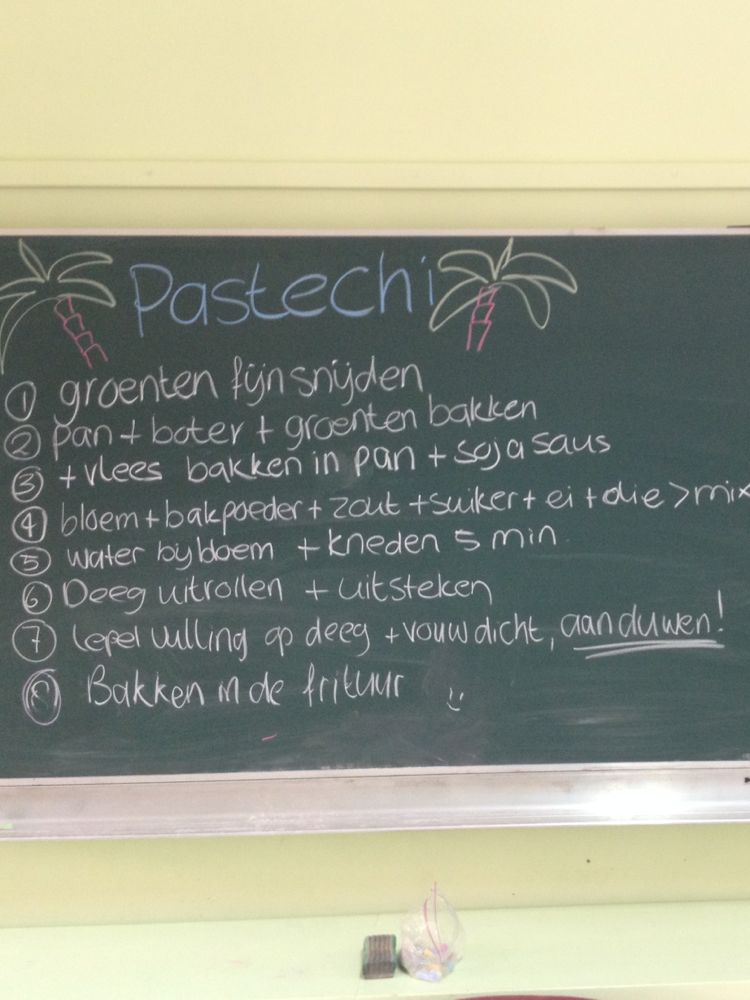 Pastechi
① groenten fijn snijden
② pan + boter + groenten bakken
③ + vlees bakken in pan + soja saus
④ bloem + bakpoeder + zout + suiker + ei + olie > mix
⑤ water bij bloem + kneden 5 min
⑥ Deeg uitrollen + uitsteken
⑦ lepel vulling op deeg + vouw dicht, aanduwen!
⑧ Bakken in de frituur